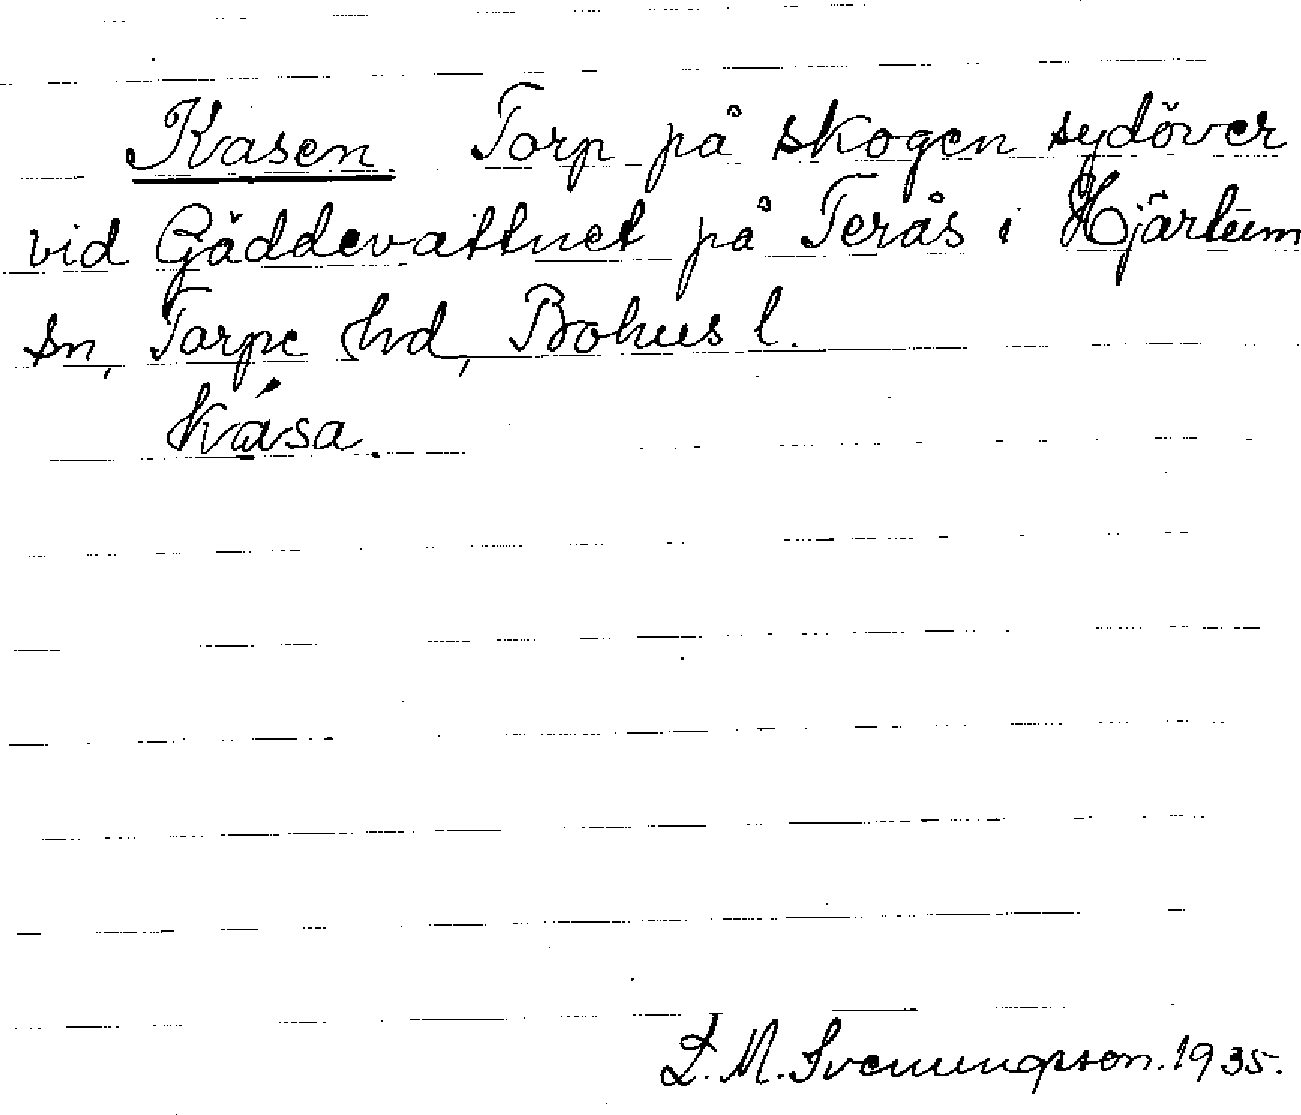 Kasen Torp på skogen sydöver
vid Gäddevattnet på Terås i Hjärtum
sn, Torpe hd, Bohus l.
kása.
L. M. Svenungsson. 1935.